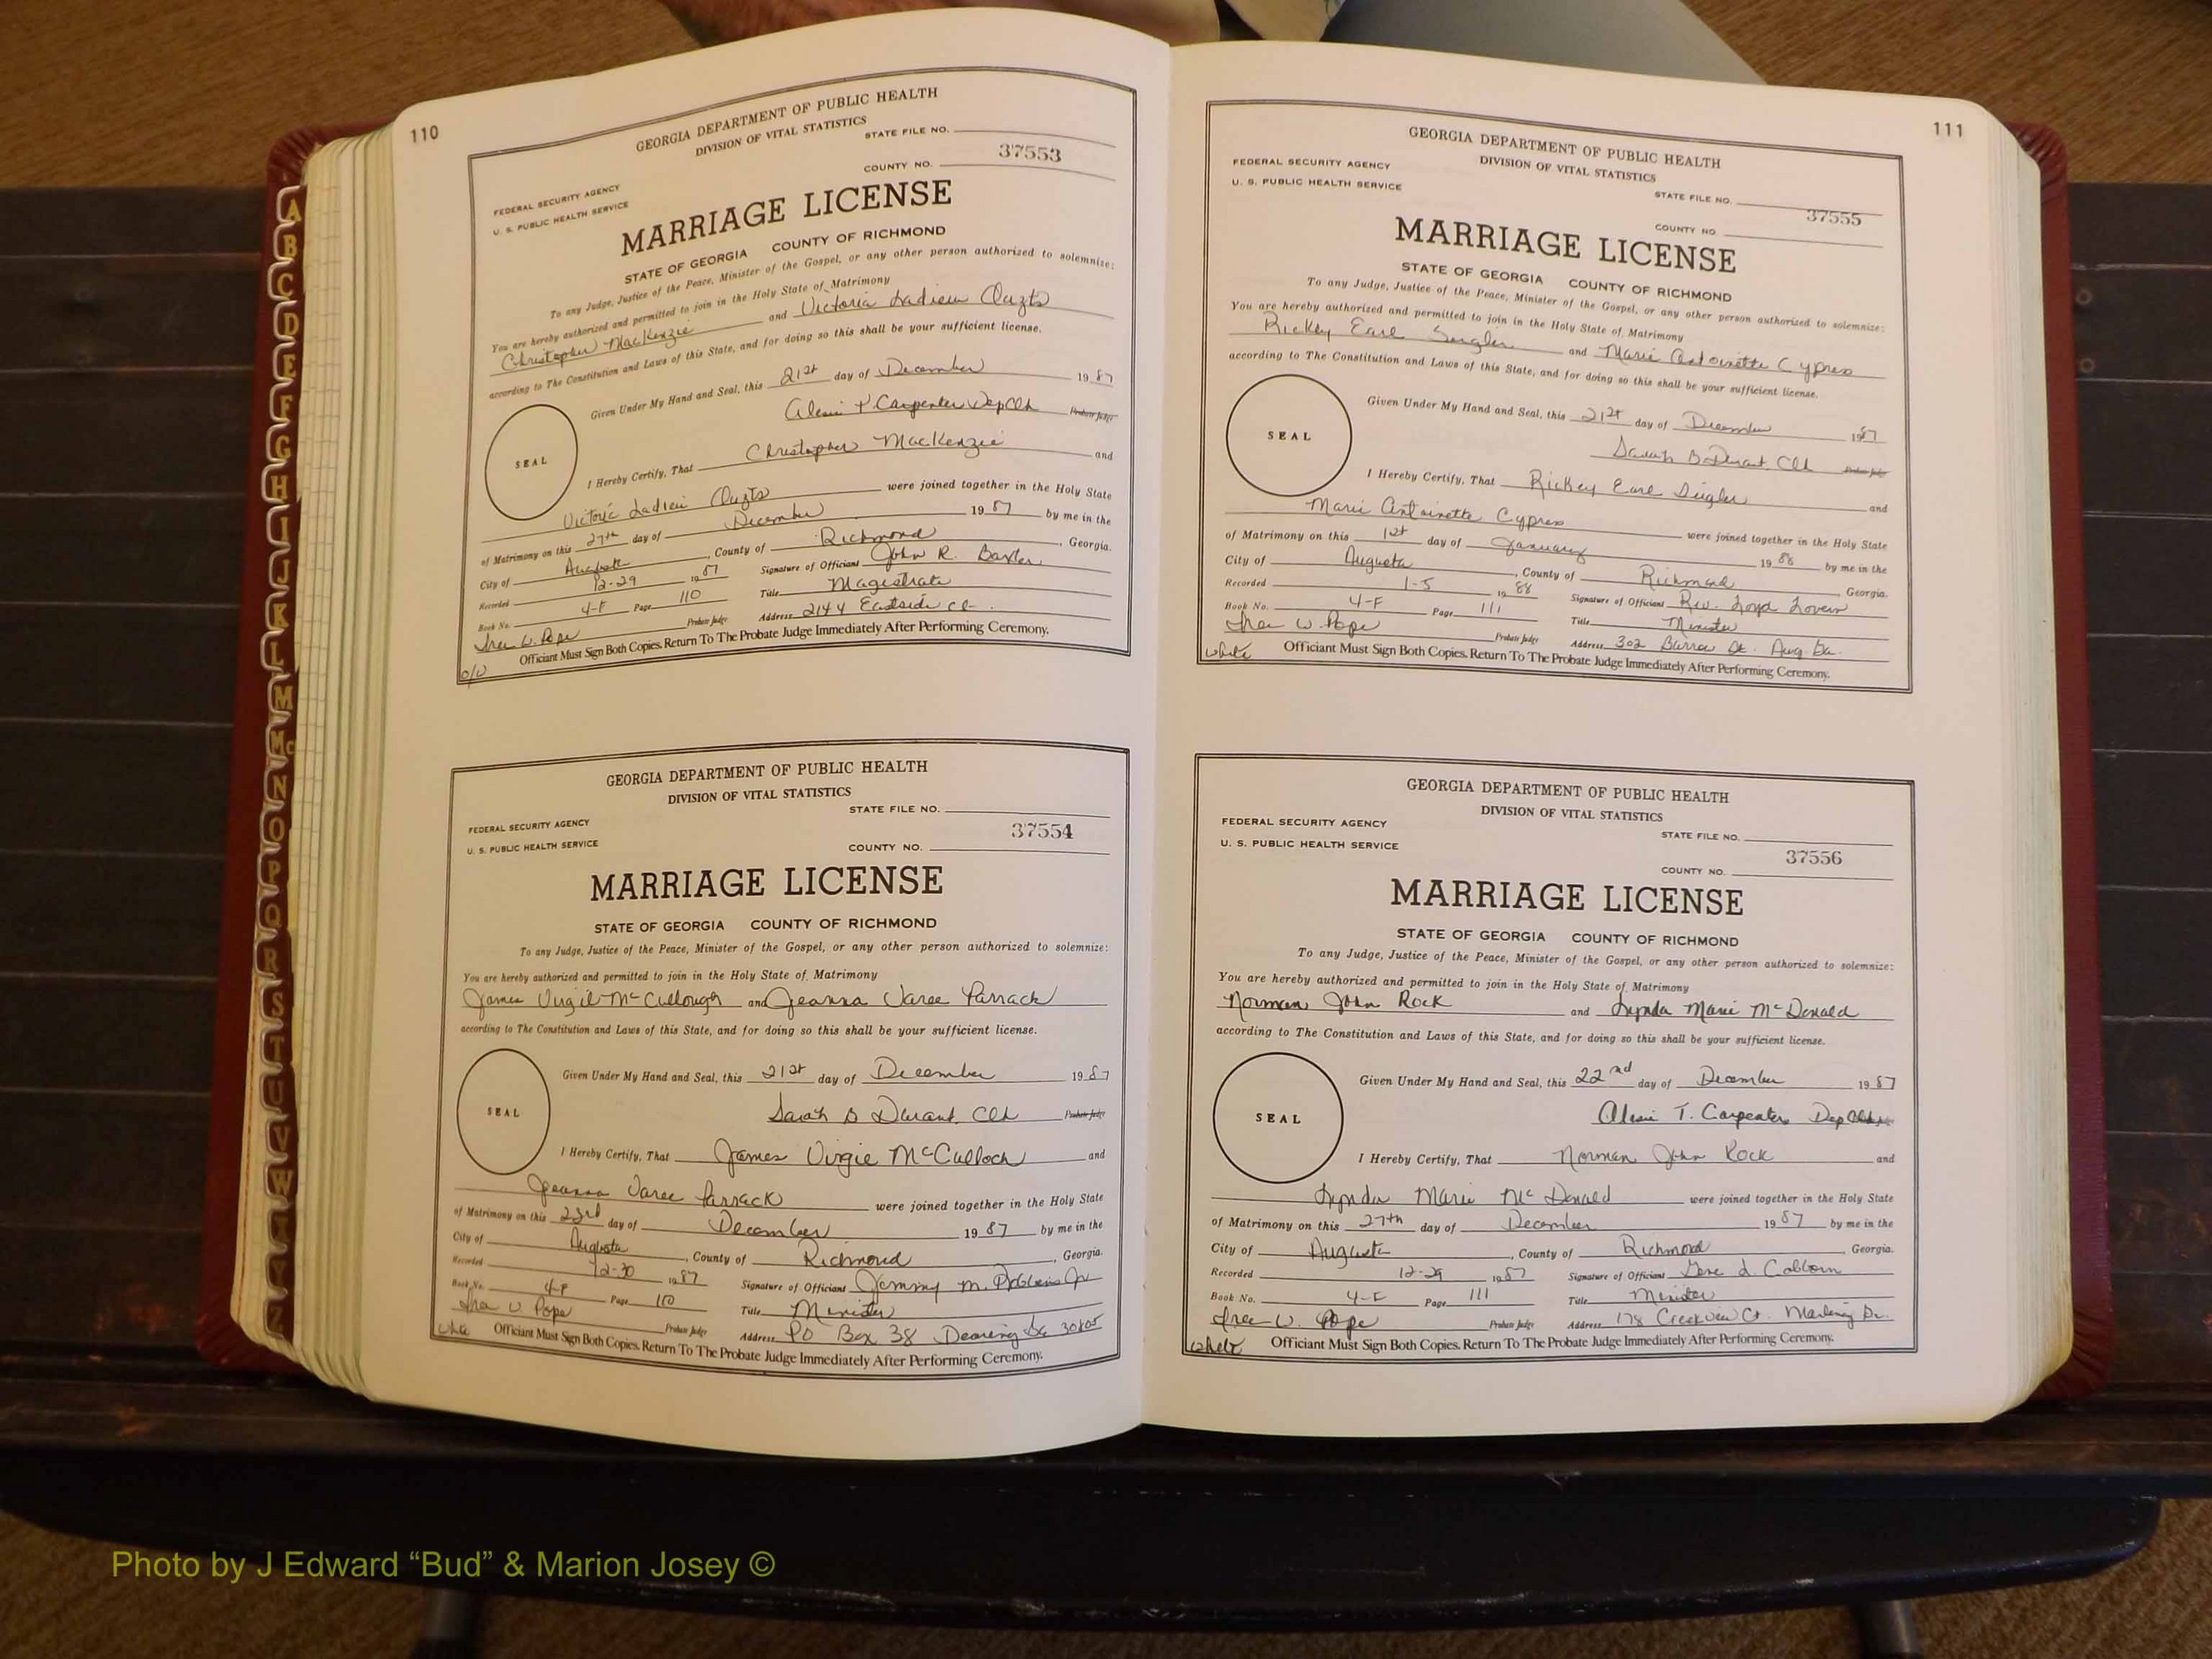 110
GEORGIA DEPARTMENT OF PUBLIC HEALTH
DIVISION OF VITAL STATISTICS
STATE FILE NO.
37553
COUNTY NO.
FEDERAL SECURITY AGENCY
U. S. PUBLIC HEALTH SERVICE
MARRIAGE LICENSE
STATE OF GEORGIA COUNTY OF RICHMOND
To any Judge, Justice of the Peace, Minister of the Gospel, or any other person authorized to solemnize:
You are hereby authorized and permitted to join in the Holy State of Matrimony
Christopher MacKenzie and Victoria
according to The Constitution and Laws of this State, and for doing so this shall be your sufficient license.
Given Under My Hand and Seal, this 21st day of December 1987
Carpenter Dep Clk Probate Judge
SEAL
I Hereby Certify, That Christopher MacKenzie and
were joined together in the Holy State
of Matrimony on this 27th day of December 1987 by me in the
City of Augusta, County of Richmond, Georgia.
Recorded 12-29 1987 Signature of Officiant John R. Baxter
Book No. 4-F Page 110 Title Magistrate
Probate Judge Address 2144 Eastside Ct.
W. Pope
o/w Officiant Must Sign Both Copies. Return To The Probate Judge Immediately After Performing Ceremony.
GEORGIA DEPARTMENT OF PUBLIC HEALTH
DIVISION OF VITAL STATISTICS
STATE FILE NO.
37554
FEDERAL SECURITY AGENCY
U. S. PUBLIC HEALTH SERVICE COUNTY NO.
MARRIAGE LICENSE
STATE OF GEORGIA COUNTY OF RICHMOND
To any Judge, Justice of the Peace, Minister of the Gospel, or any other person authorized to solemnize:
You are hereby authorized and permitted to join in the Holy State of Matrimony
James Virgil McCullough and Jeanna Varee Parrack
according to The Constitution and Laws of this State, and for doing so this shall be your sufficient license.
Given Under My Hand and Seal, this 21st day of December 1987
Sarah B Durant, Clk Probate Judge
SEAL
I Hereby Certify, That James Virgie McCulloch and
Jeanna Varee Parrack were joined together in the Holy State
of Matrimony on this 23rd day of December 1987 by me in the
City of Augusta, County of Richmond, Georgia.
Recorded 12-30 1987 Signature of Officiant
Book No. 4-F Page 110 Title Minister
W. Pope Probate Judge Address PO Box 38 Dearing Ga
Officiant Must Sign Both Copies. Return To The Probate Judge Immediately After Performing Ceremony.
111
GEORGIA DEPARTMENT OF PUBLIC HEALTH
DIVISION OF VITAL STATISTICS
FEDERAL SECURITY AGENCY
U. S. PUBLIC HEALTH SERVICE
STATE FILE NO.
37555
COUNTY NO.
MARRIAGE LICENSE
STATE OF GEORGIA COUNTY OF RICHMOND
To any Judge, Justice of the Peace, Minister of the Gospel, or any other person authorized to solemnize:
You are hereby authorized and permitted to join in the Holy State of Matrimony
Rickey Earl and Marie Antoinette Cypress
according to The Constitution and Laws of this State, and for doing so this shall be your sufficient license.
Given Under My Hand and Seal, this 21st day of December 1987
Sarah B Durant, Clk Probate Judge
SEAL
I Hereby Certify, That Rickey Earl and
Marie Antoinette Cypress were joined together in the Holy State
of Matrimony on this 1st day of January 1988 by me in the
City of Augusta, County of Richmond Georgia.
Recorded 1-5 1988 Signature of Officiant Rev.
Book No. 4-F Page 111 Title Minister
W. Pope Probate Judge Address 302 St. Aug. Ga.
white Officiant Must Sign Both Copies. Return To The Probate Judge Immediately After Performing Ceremony.
GEORGIA DEPARTMENT OF PUBLIC HEALTH
DIVISION OF VITAL STATISTICS
FEDERAL SECURITY AGENCY STATE FILE NO.
U. S. PUBLIC HEALTH SERVICE
37556
COUNTY NO.
MARRIAGE LICENSE
STATE OF GEORGIA COUNTY OF RICHMOND
To any Judge, Justice of the Peace, Minister of the Gospel, or any other person authorized to solemnize:
You are hereby authorized and permitted to join in the Holy State of Matrimony
Norman John Rock and Lynda Marie McDonald
according to The Constitution and Laws of this State, and for doing so this shall be your sufficient license.
Given Under My Hand and Seal, this 22nd day of December 1987
T. Carpenter Dep
SEAL
I Hereby Certify, That Norman John Rock and
Lynda Marie McDonald were joined together in the Holy State
of Matrimony on this 27th day of December 1987 by me in the
City of Augusta, County of Richmond, Georgia.
Recorded 12-29 1987 Signature of Officiant Gene L.
Book No. 4-F Page 111 Title Minister
W. Pope Probate Judge Address 178 Creekview Ct.
white Officiant Must Sign Both Copies. Return To The Probate Judge Immediately After Performing Ceremony.
A
B
C
D
E
F
G
H
I
J
K
L
M
Mc
N
O
P
Q
R
S
T
U
V
W
Photo by J Edward “Bud” & Marion Josey ©